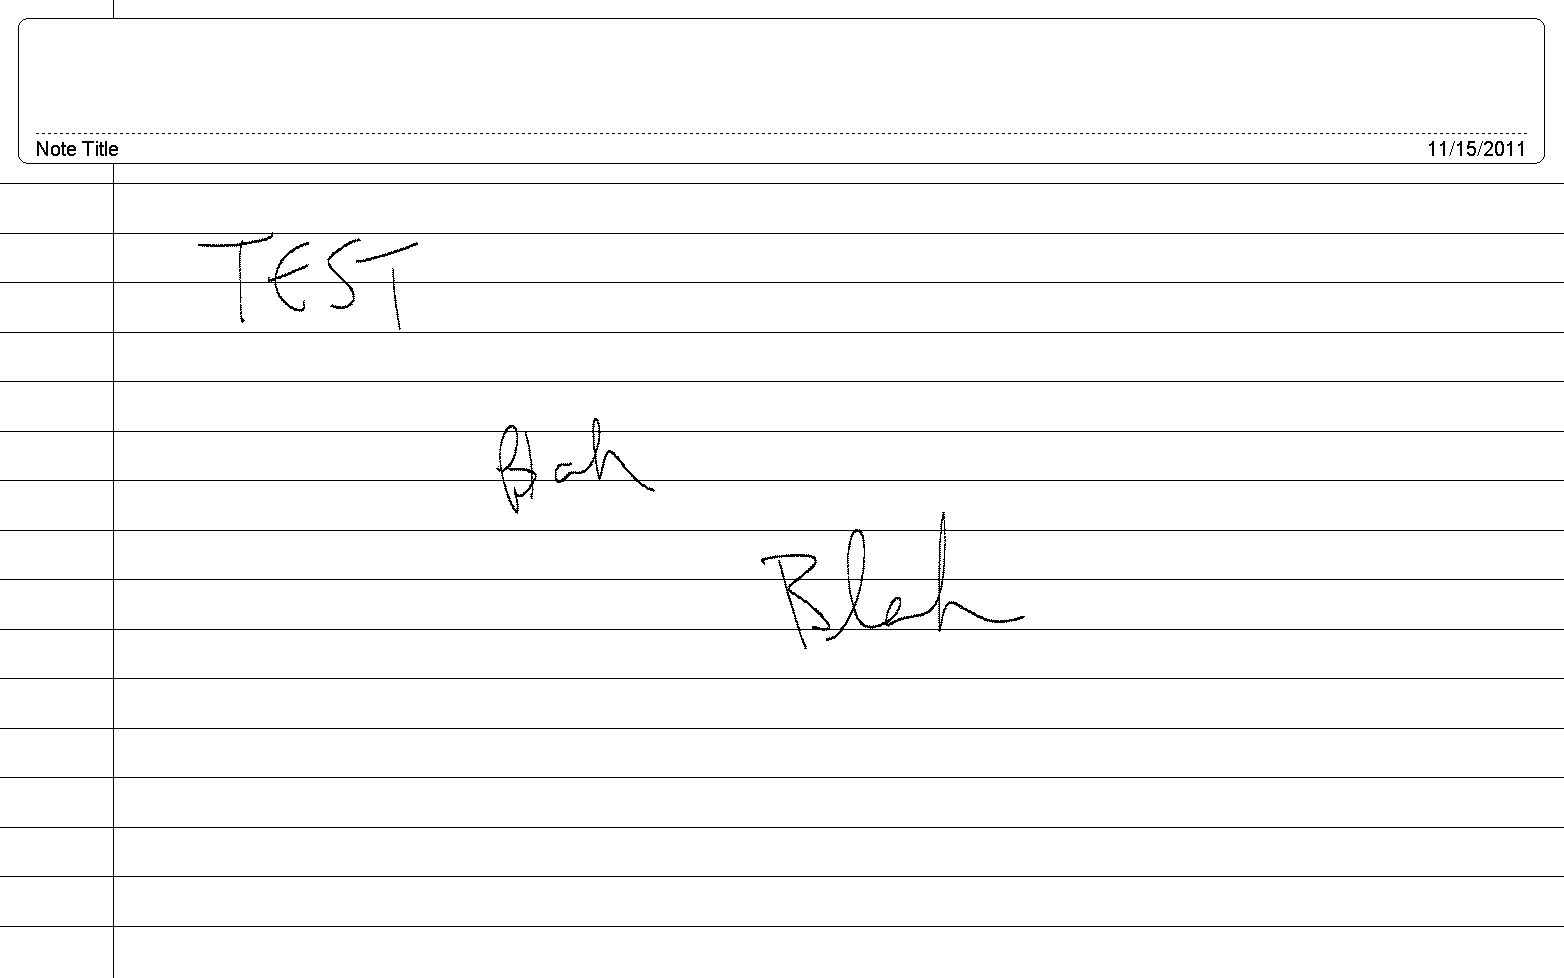 Note Title 11/15/2011
TEST
Blah
Blah